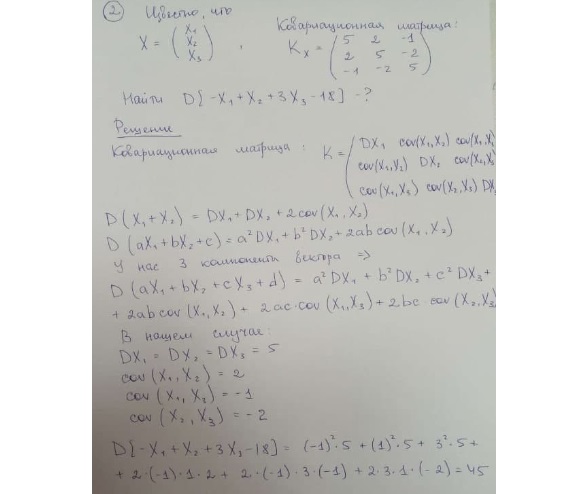 ② Известно, что
X = (X₁ X₂ X₃), Ковариационная матрица:
Kₓ = (5 2 -1
2 5 -2
-1 -2 5)
Найти D[-X₁+X₂+3X₃-18] -?
Решение
Ковариационная матрица: K = (DX₁ cov(X₁,X₂) cov(X₁,X₃
cov(X₁,X₂) DX₂ cov(X₂,X₃
cov(X₁,X₃) cov(X₂,X₃) DX₃
D(X₁+X₂) = DX₁+DX₂+2cov(X₁,X₂)
D(aX₁+bX₂+c)=a²DX₁+b²DX₂+2abcov(X₁,X₂)
У нас 3 компоненты вектора =>
D(aX₁+bX₂+cX₃+d) = a²DX₁+b²DX₂+c²DX₃+
+2abcov(X₁,X₂)+ 2ac·cov(X₁,X₃)+2bc·cov(X₂,X₃)
В нашем случае:
DX₁ = DX₂ = DX₃ = 5
cov(X₁,X₂) = 2
cov(X₁,X₃) = -1
cov(X₂,X₃) = -2
D[-X₁+X₂+3X₃-18] = (-1)²·5+(1)²·5+ 3²·5+
+2·(-1)·1·2+ 2·(-1)·3·(-1) +2·3·1·(-2)=45